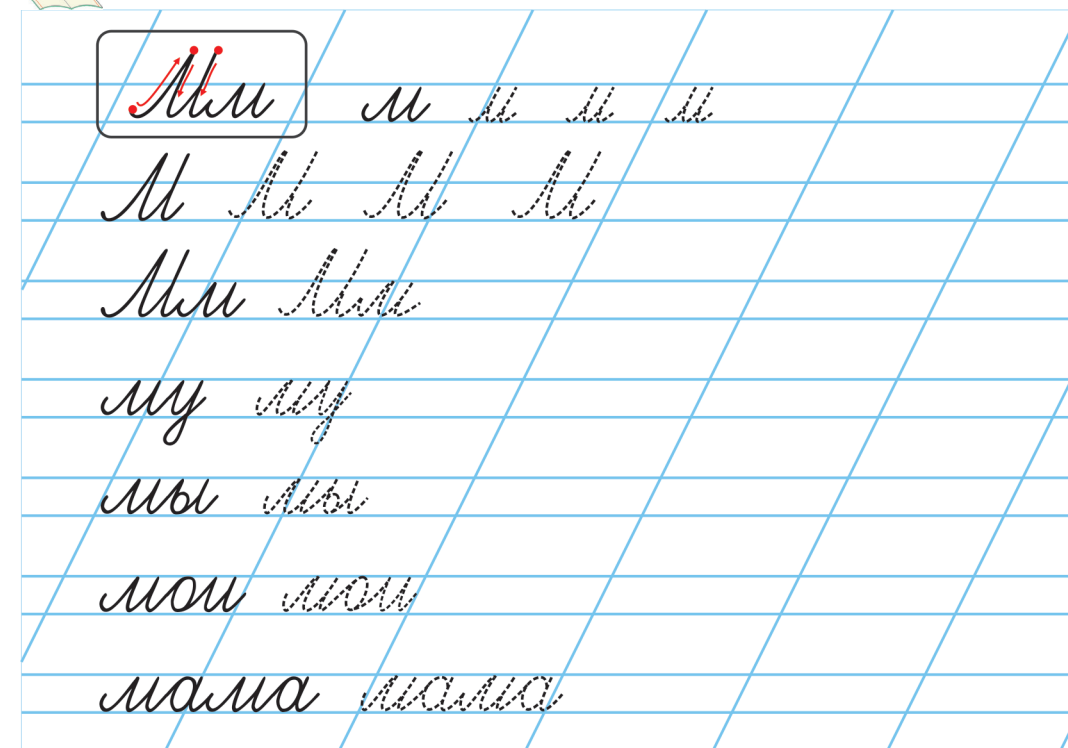 Мм м м м м
М М М М
Мм Мм
му му
мы мы
мои мои
мама мама